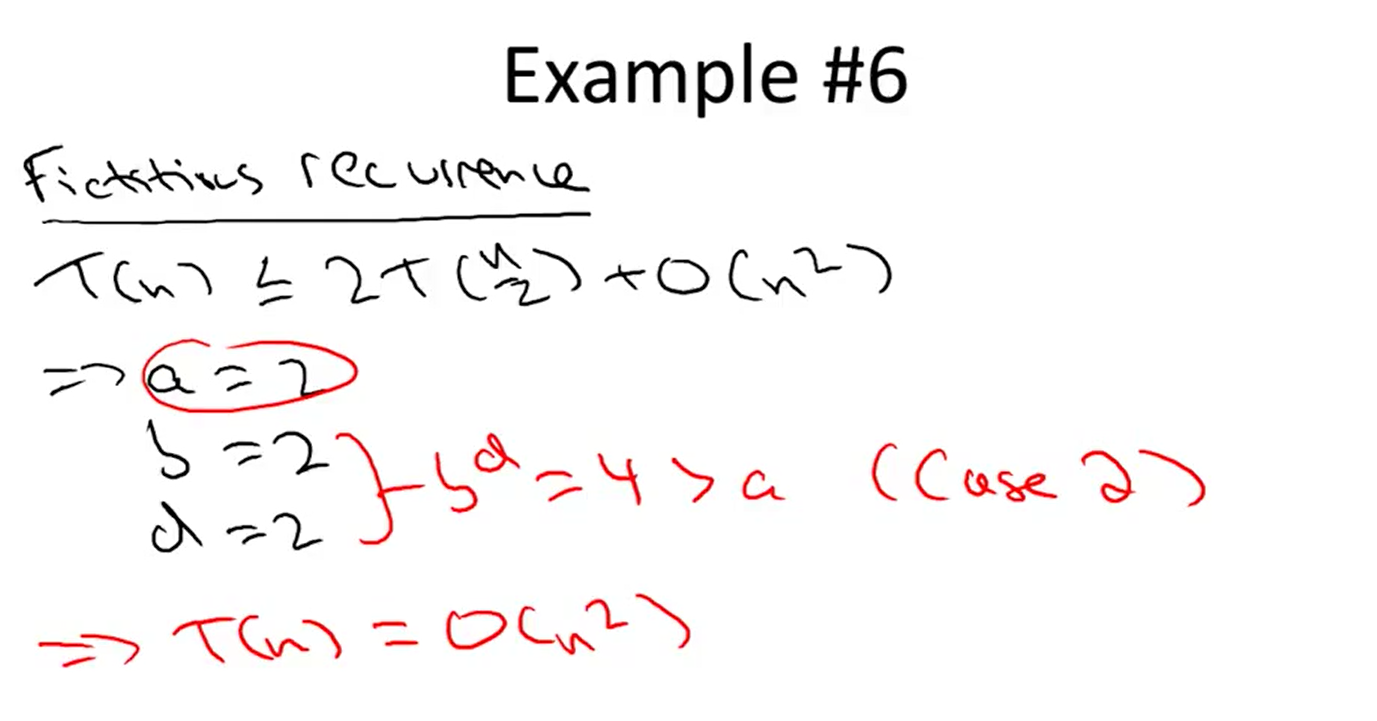 Example #6
Fictitious recurrence
T(n) ≤ 2T(n/2) + O(n²)
⇒ a = 2
b = 2
d = 2
} - b^d = 4 > a (Case 2)
⇒ T(n) = O(n²)